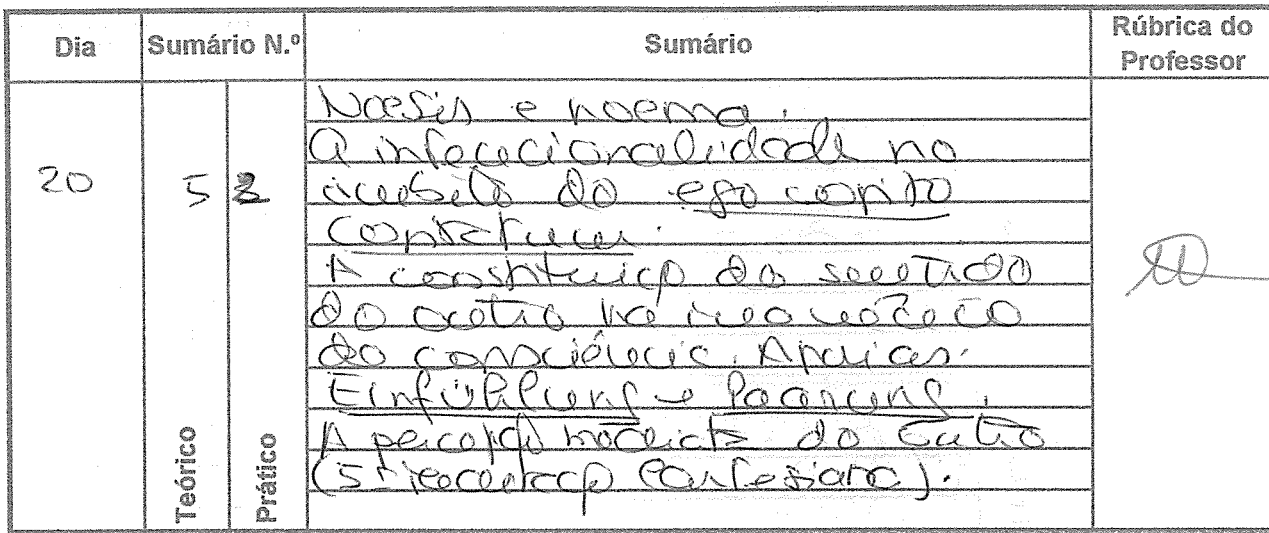 Dia
Sumário N.º
Sumário
Rúbrica do
Professor
20
5
2
Teórico
Prático
Noesis e noema.
A intencionalidade no
âmbito do ego cogito
cogitatum.
A constituição do sentido
do outro na imanência
da consciência. Aporias.
Einfühlung e Paarung.
A percepção mediata do outro
(5ª meditação cartesiana).